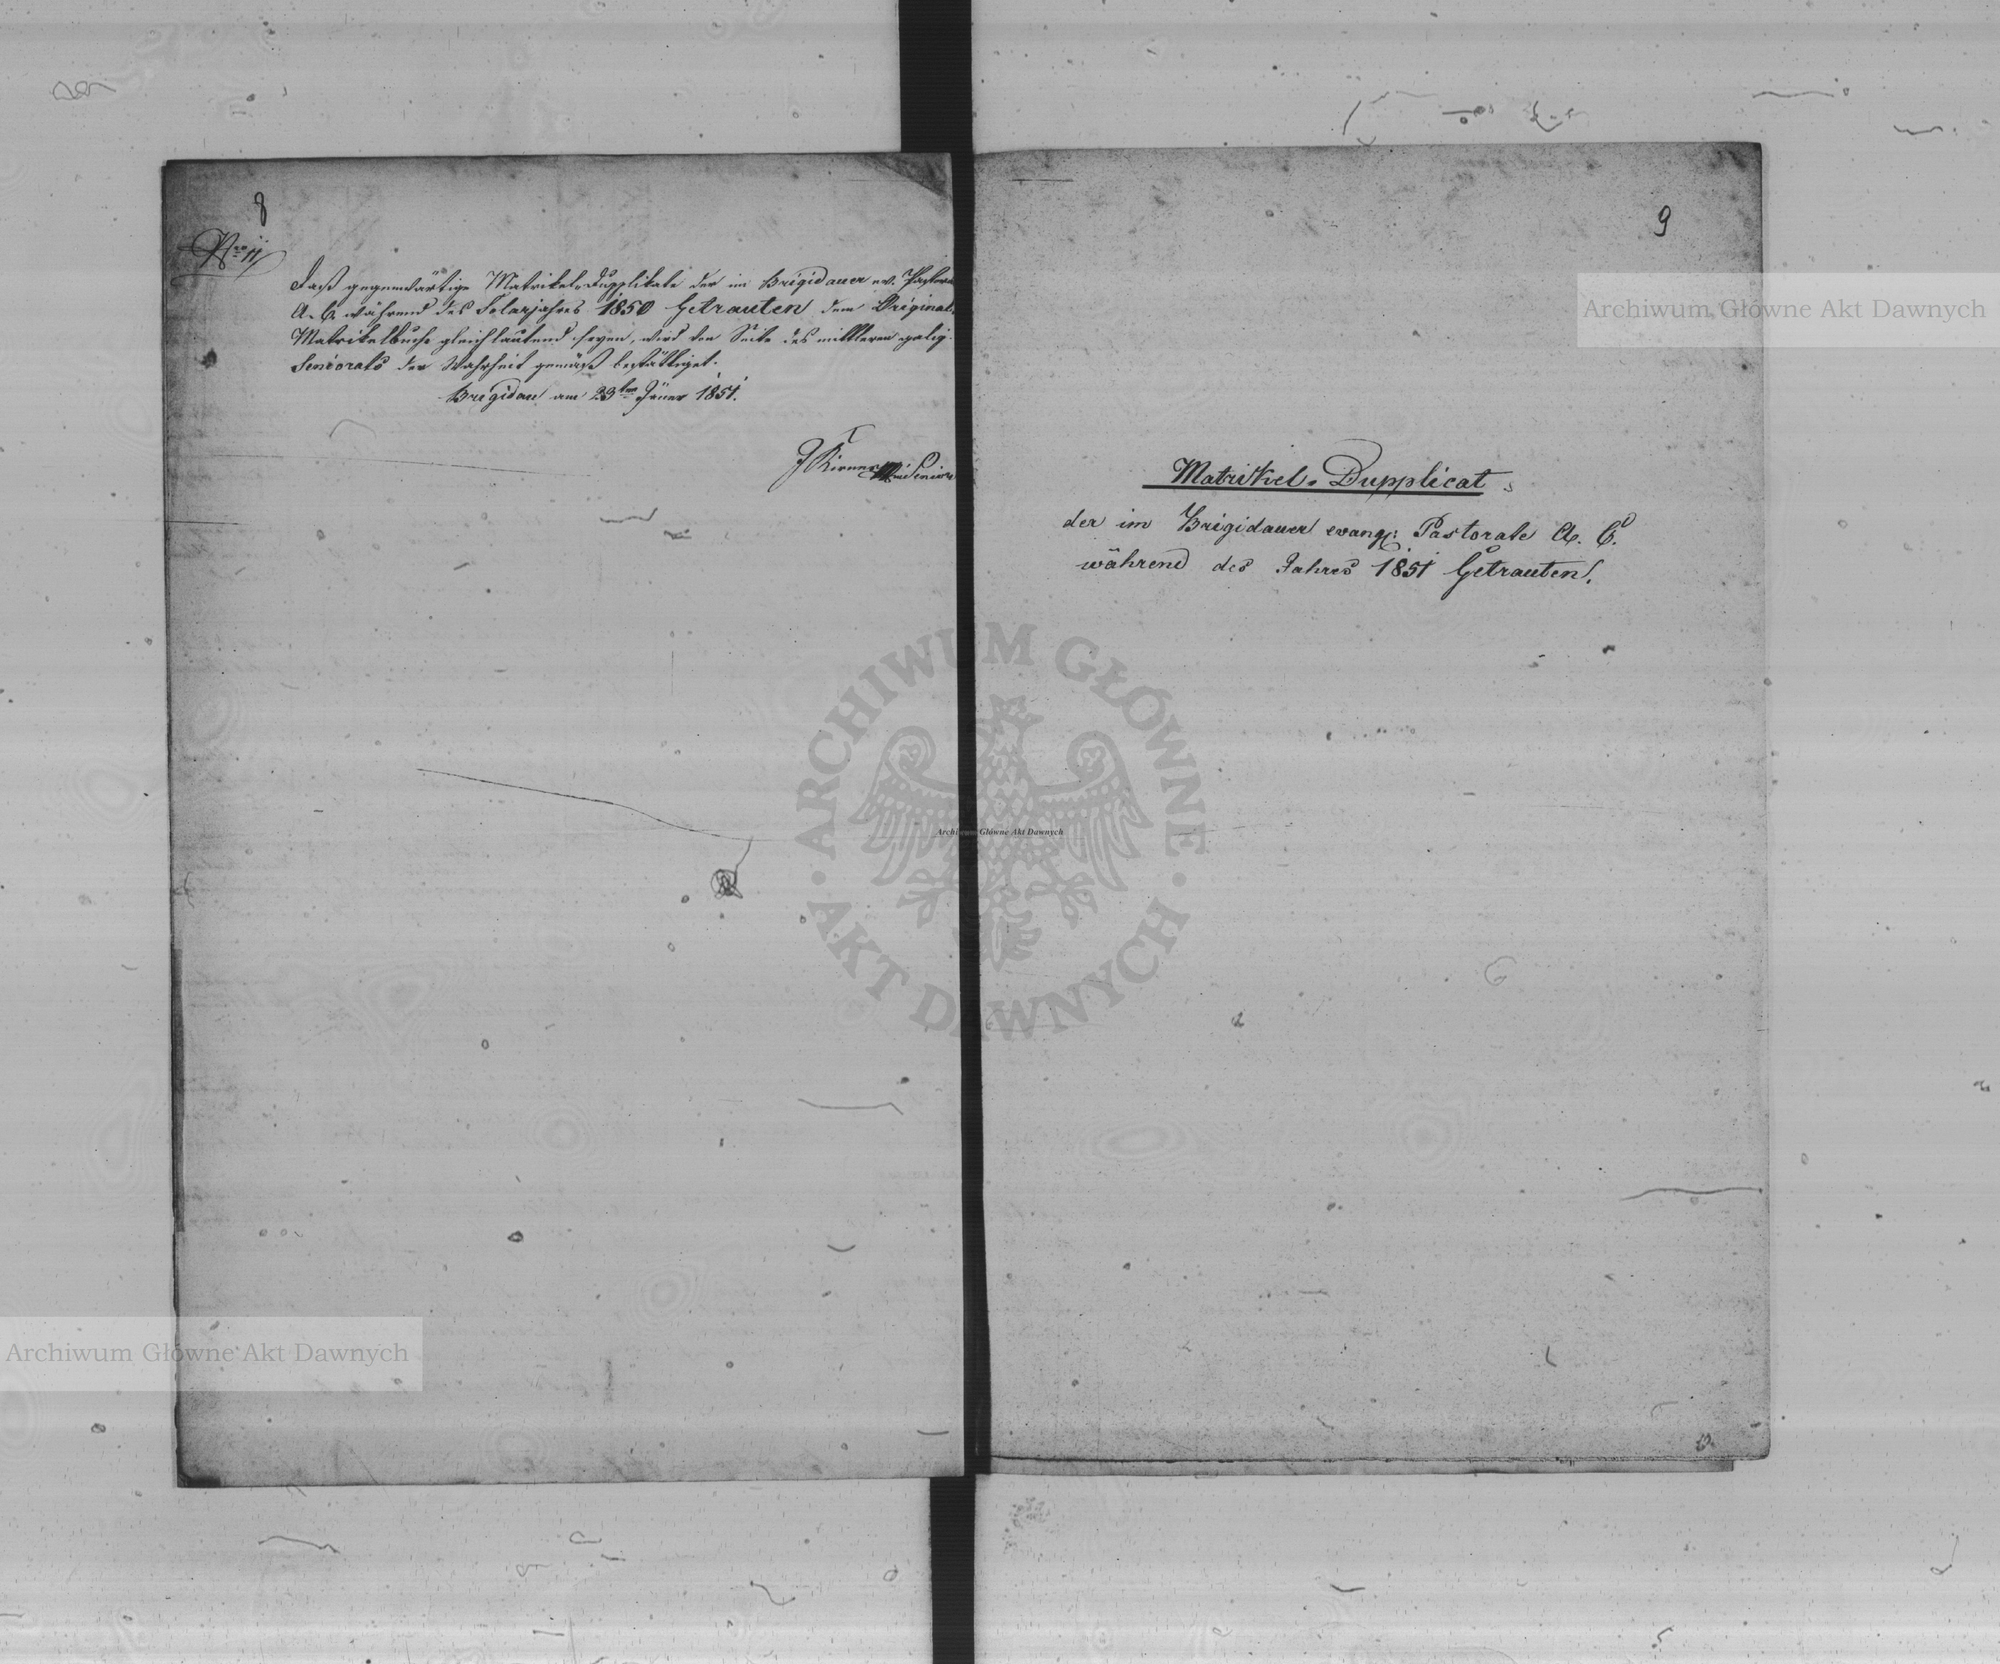 8
Nro 11
Daß gegenwärtige Matrikel-Dupplikate der im Brigidauer ev. Pastorate
A. C. während des Solarjahres 1850 Getrauten dem Original-
Matrikelbuche gleichlautend seyen, wird von Seite des mittleren galiz.
Seniorats der Wahrheit gemäß bestättiget.
Brigidau am 23ten Jäner 1851.
Senior
9
Matrikel-Dupplicat
der im Brigidauer evang: Pastorate A. C.
während des Jahres 1851 Getrauten.
Archiwum Główne Akt Dawnych
ARCHIWUM GŁÓWNE
AKT DAWNYCH
Archiwum Główne Akt Dawnych
Archiwum Główne Akt Dawnych